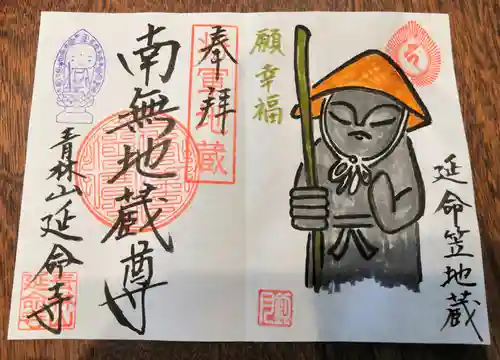 願幸福
延命笠地蔵
奉拝
将軍地蔵
南無地蔵尊
青林山延命寺